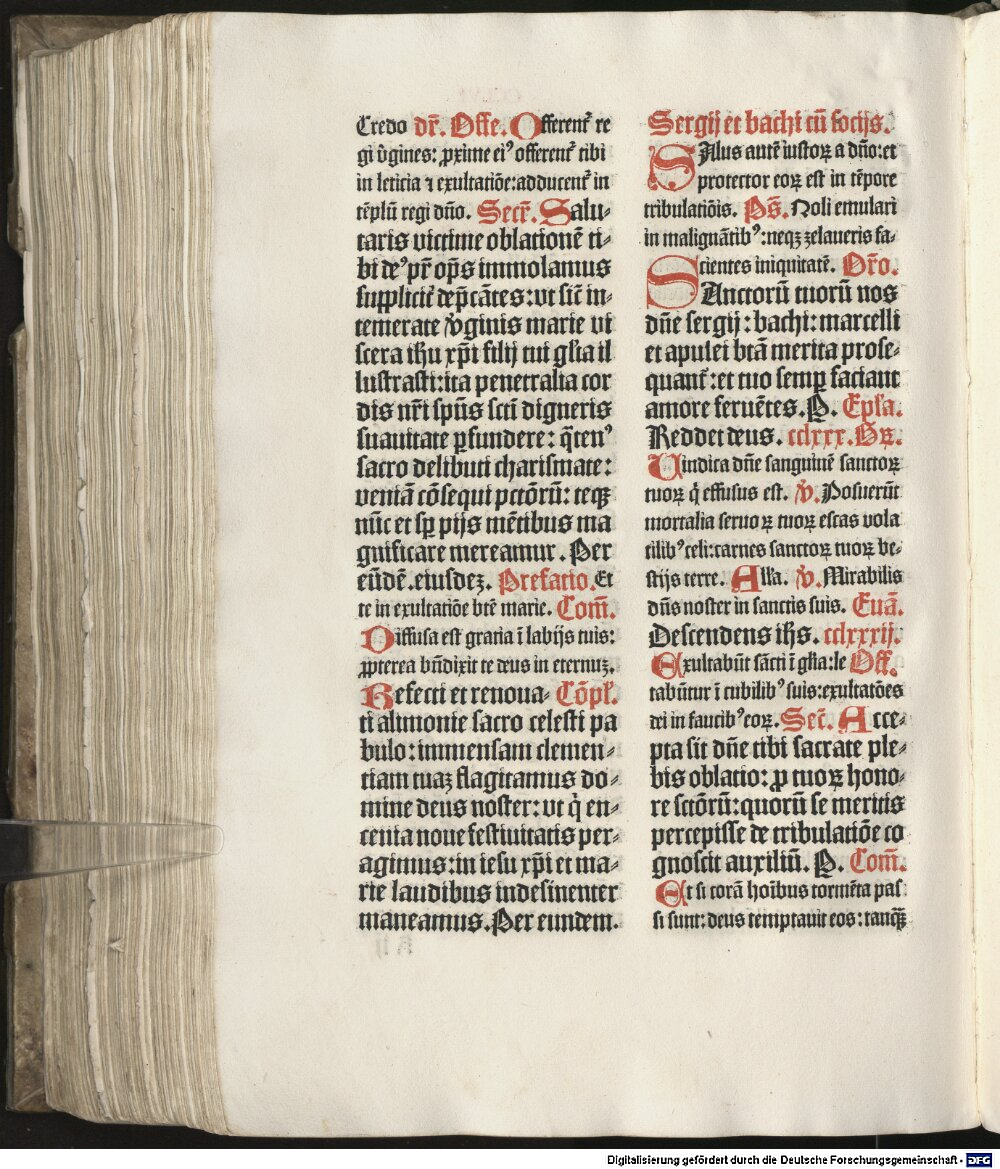 Credo dr̄. Offe. Offerenť re
gi v̇gines: ꝓxime eiꝰ offerenť tibi
in leticia ⁊ exultatiōe: adducenť in
tēplū regi dn̄o. Secř. Salu⸗
taris victime oblationē ti⸗
bi deꝰ pr̄ op̄s immolamus
suppliciť dep̄cātes: vt sic̄ in⸗
temerate v̇ginis marie vi
scera ihu xp̄i filij tui gl̄ia il
lustrasti: ita penetralia cor
dis nr̄i sp̄us sc̄ti digneris
suauitate ꝑfundere: q̄tenꝰ
sacro delibuti charismate:
veniā cōsequi pctōrū: teqꝫ
nūc et sꝑ pijs mētibus ma
gnificare mereamur. Per
eūdē. eiusdeꝫ. Prefatio. Et
te in exultatiōe btē marie. Com̄.
Diffusa est gratia ī labijs tuis:
ꝓpterea bn̄dixit te deus in eternuꝫ.
Refecti et renoua⸗ Cōpľ.
ti alimonie sacro celesti pa
bulo: immensam clemen⸗
tiam tuaꝫ flagitamus do⸗
mine deus noster: vt q̇ en⸗
cenia noue festiuitatis per⸗
agimus: in iesu xp̄i et ma⸗
rie laudibus indesinenter
maneamus. Per eundem.
Sergij et bachi cū socijs.
SAlus autē iustoꝝ a dn̄o: et
protector eoꝝ est in tēpore
tribulatiōis. Ps̄. Noli emulari
in malignātibꝰ: neqꝫ zelaueris fa⸗
cientes iniquitatē. Or̄o.
SAnctorū tuorū nos
dn̄e sergij: bachi: marcelli
et apulei btā merita prose⸗
quanť: et tuo semꝑ faciant
amore feruētes. P. Epľa.
Reddet deus. cclxxx. Gꝝ.
Uindica dn̄e sanguinē sanctoꝝ
tuoꝝ q̇ effusus est. v̇. Posuerūt
mortalia seruoꝝ tuoꝝ escas vola
tilibꝰ celi: carnes sanctoꝝ tuoꝝ be⸗
stijs terre. Alľa. v̇. Mirabilis
dn̄s noster in sanctis suis. Euā.
Descendens ihs. cclxxxij.
Exultabūt sācti ī gľia: le Off.
tabūtur ī cubilibꝰ suis: exultatōes
dei in faucibꝰ eoꝝ. Sec̄. Acce⸗
pta sit dn̄e tibi sacrate ple⸗
bis oblatio: ꝓ tuoꝝ hono⸗
re sctōrū: quorū se meritis
percepisse de tribulatiōe co
gnoscit auxiliū. P. Com̄.
Et si corā hoībus tormēta pas
si sunt: deus temptauit eos: tanqꝫ̄
Digitalisierung gefördert durch die Deutsche Forschungsgemeinschaft - DFG